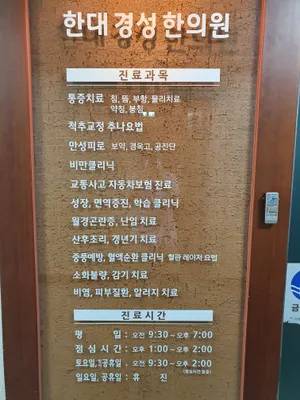 한대 경성 한의원
진료과목
통증치료 침, 뜸, 부항, 물리치료
약침, 봉침
척추교정 추나요법
만성피로 보약, 경옥고, 공진단
비만클리닉
교통사고 자동차보험 진료
성장, 면역증진, 학습 클리닉
월경곤란증, 난임 치료
산후조리, 갱년기 치료
중풍예방, 혈액순환 클리닉 혈관 레이저 요법
소화불량, 감기 치료
비염, 피부질환, 알러지 치료
진료시간
평 일 : 오전 9:30 ~ 오후 7:00
점심시간 : 오후 1:00 ~ 오후 2:00
토요일, 공휴일 : 오전 9:30 ~ 오후 2:00
일요일, 공휴일 : 휴 진
금